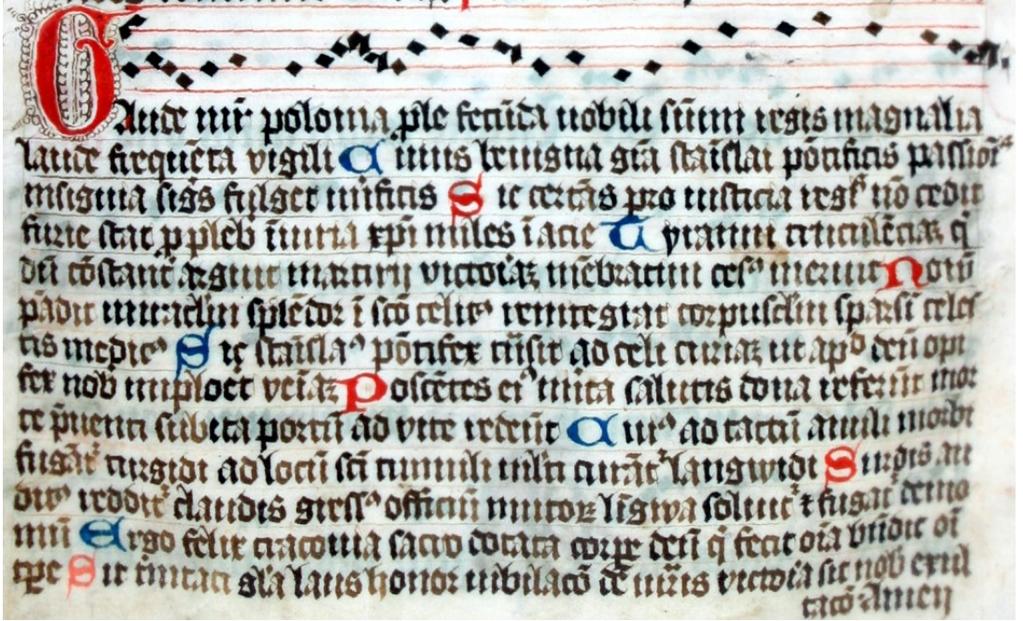 Gaude mr̄ polonia ꝓle fecūda nobili sūmi regis magnalia
laude frequēta vigili Cuius benigna grā staīslai pōtificis passioīs
insignia sigs fulget mīficis Sic certās pro iusticia regꝭ nō cedit
furie stat ꝓ pleb īiuria xpī miles ī acie Tyranni truculēciaꝫ q̄
dū cōstant᷑ arguit martirij victoriaꝫ mēbratim cesꝰ meruit Nouū
pādit miraclm splēdor ī scō celitꝰ reintegrat corpusclm sparsī celes
tis medicꝰ Sic staīslaꝰ pōtifex trāsit ad celi curiaꝫ ut apd deū opi
fex nob imploret veīaꝫ Poscētes eiꝰ mīta salutis dona referūt mor
te p̄uenti subita portū ad vite redeūt Cuiꝰ ad tactū anuli morbi
fugāt᷑ turgidi ad locū scī tumuli mlti curāt᷑ langwidi Surdis au
ditꝰ reddit᷑ claudis gressꝰ officiū mutoꝝ līgwa soluit᷑ ⁊ fugat᷑ demo
niū Ergo felix cracouia sacro dotata corꝑe deū q̄ fecit oīa bn̄dic oī
tꝑe Sit trinitati gl̄a laus honor iubilacō de mr̄is victoria sit nob exul
tacō Amen